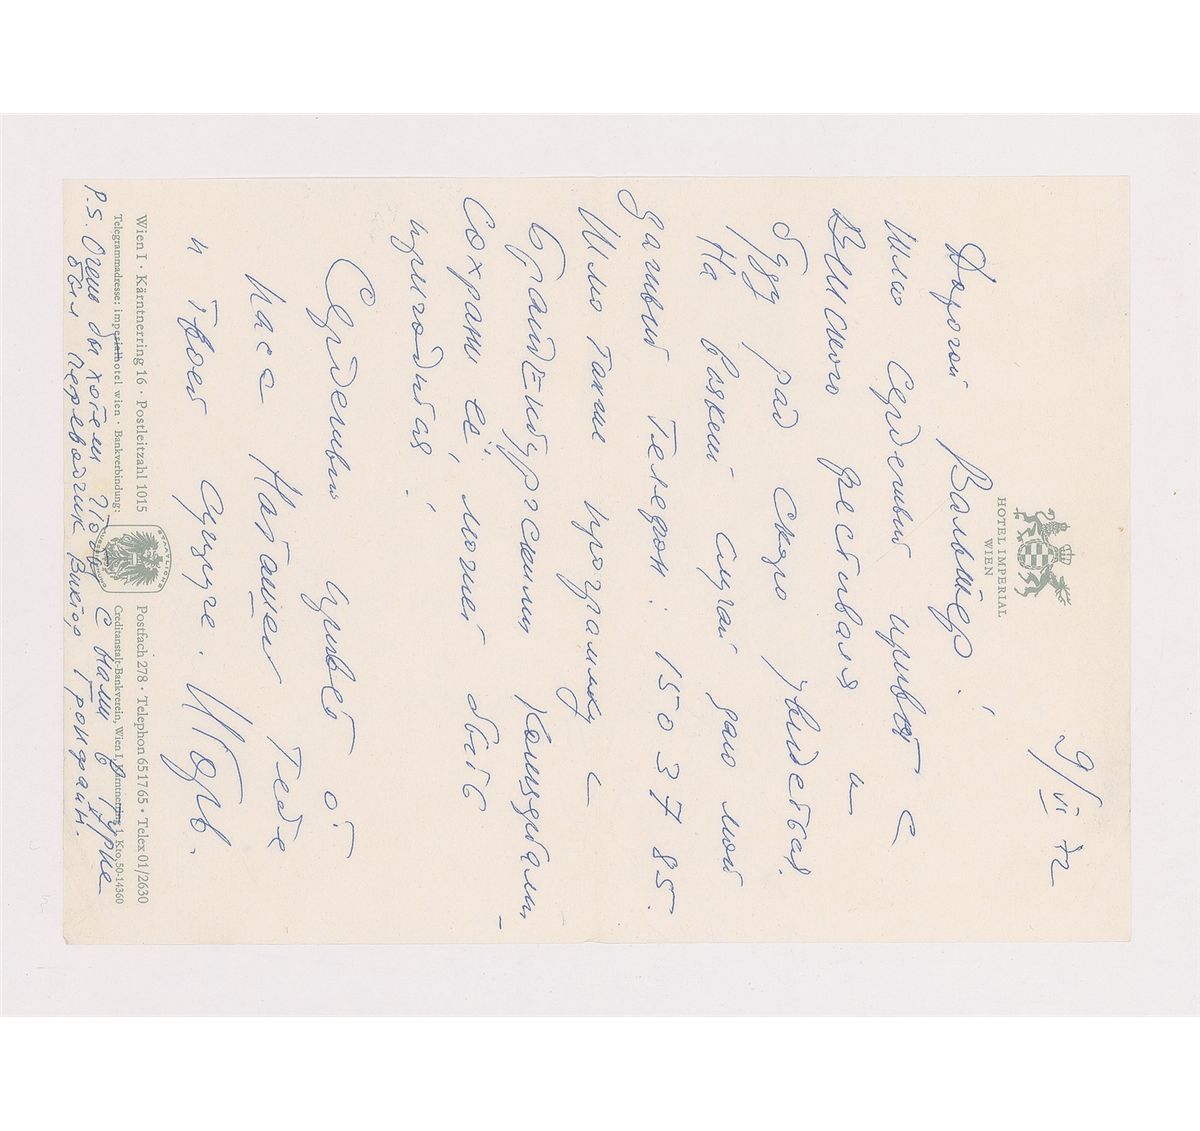 HOTEL IMPERIAL
WIEN
9/VI 72
Дорогой Вальтер!
Шлю сердечный привет с
Венского фестиваля и
буду рад скоро увидеться.
На всякий случай даю мой
дачный телефон: 150 37 85.
Шлю также программу с
Бранденбургскими Концертами,
Сохрани её, может быть
пригодится!
Сердечный привет от
нас с Наташей тебе
и твоей супруге. Игорь.
Wien I · Kärntnerring 16 · Postleitzahl 1015
Postfach 278 · Telephon 65 17 65 · Telex 01/2630
Telegrammadresse: imperialhotel wien · Bankverbindung:
Creditanstalt-Bankverein, Wien I, Kärntnerring 1, Kto. 50-14360
STAATLICHE AUSZEICHNUNG
P.S. Очень бы хотели чтобы с нами в турне
был переводчик Виктор